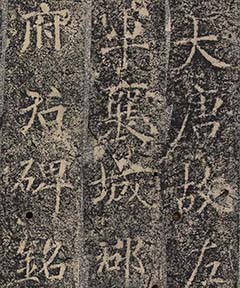 大唐故左
半襄城郡
府君碑銘